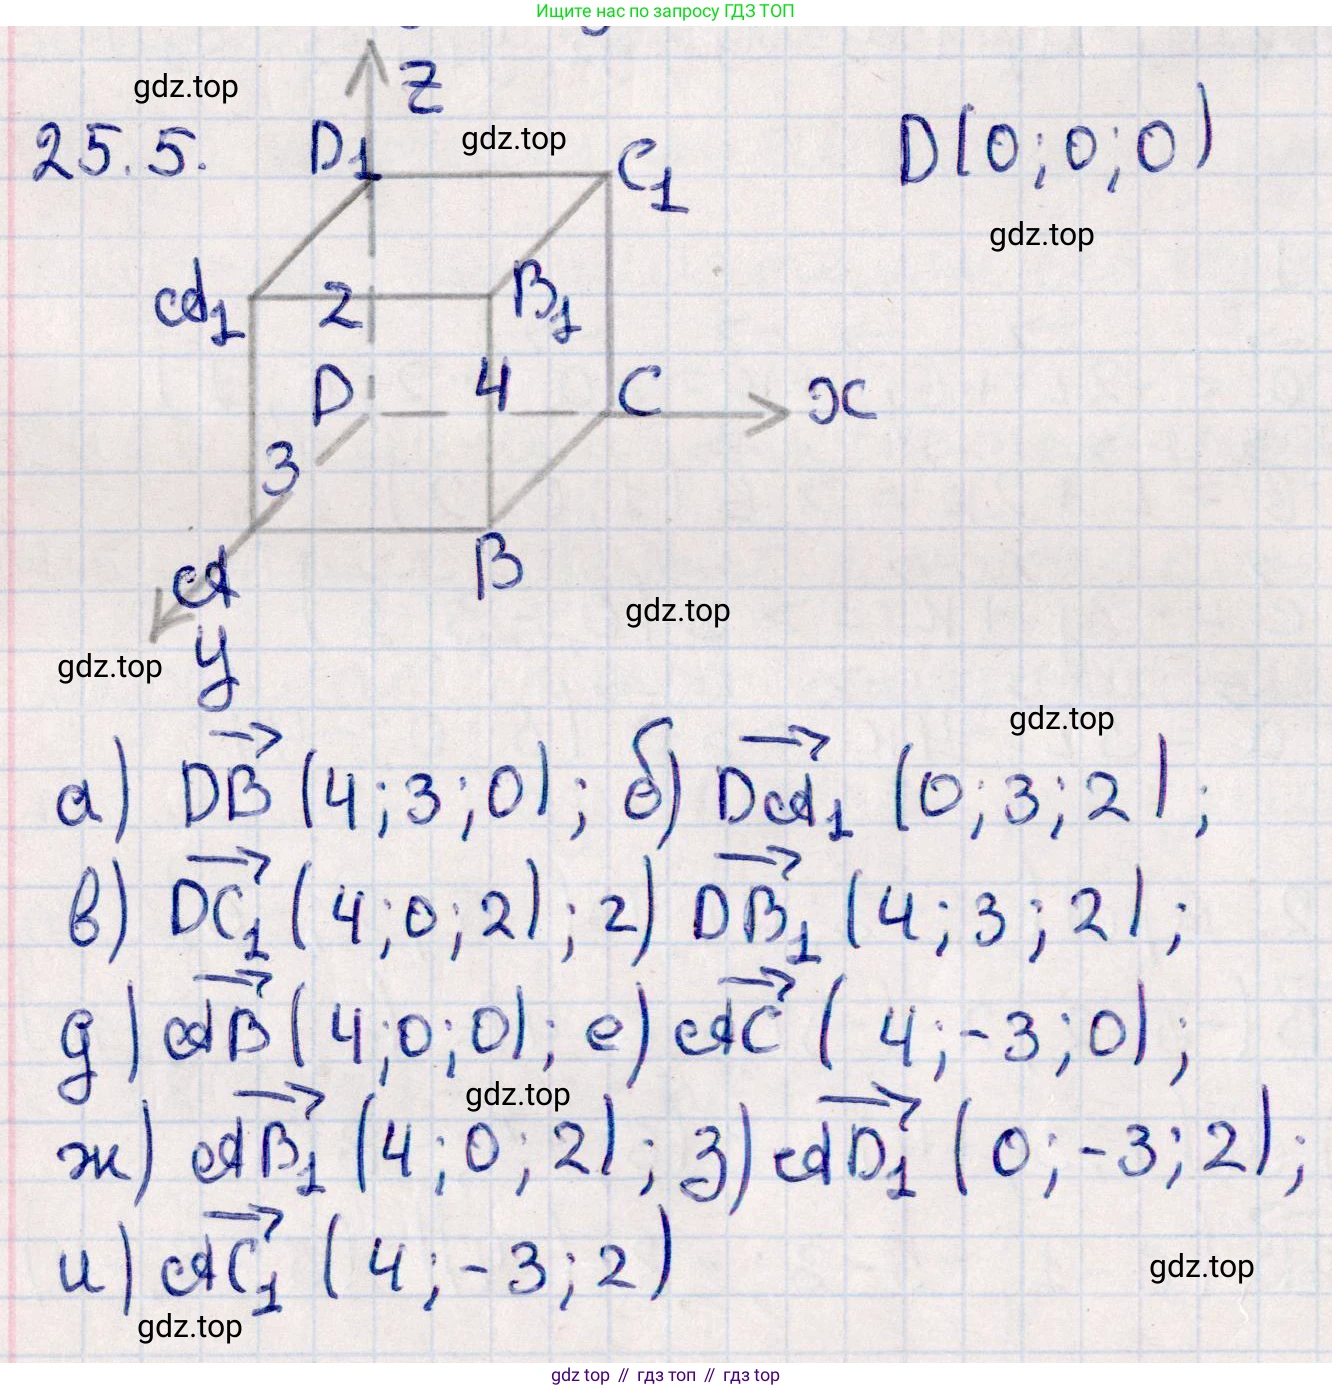 Ищите нас по запросу ГДЗ ТОП
z
gdz.top
25.5.
D₁
gdz.top
C₁
D(0; 0; 0)
gdz.top
A₁
2
B₁
D
4
C
x
3
A
B
gdz.top
gdz.top
y
gdz.top
а) DB (4; 3; 0); б) DA₁ (0; 3; 2);
в) DC₁ (4; 0; 2); г) DB₁ (4; 3; 2);
д) AB (4; 0; 0); е) AC (4; -3; 0);
gdz.top
ж) AB₁ (4; 0; 2); з) AD₁ (0; -3; 2);
и) AC₁ (4; -3; 2)
gdz.top
gdz.top
gdz top // гдз топ // gdz top